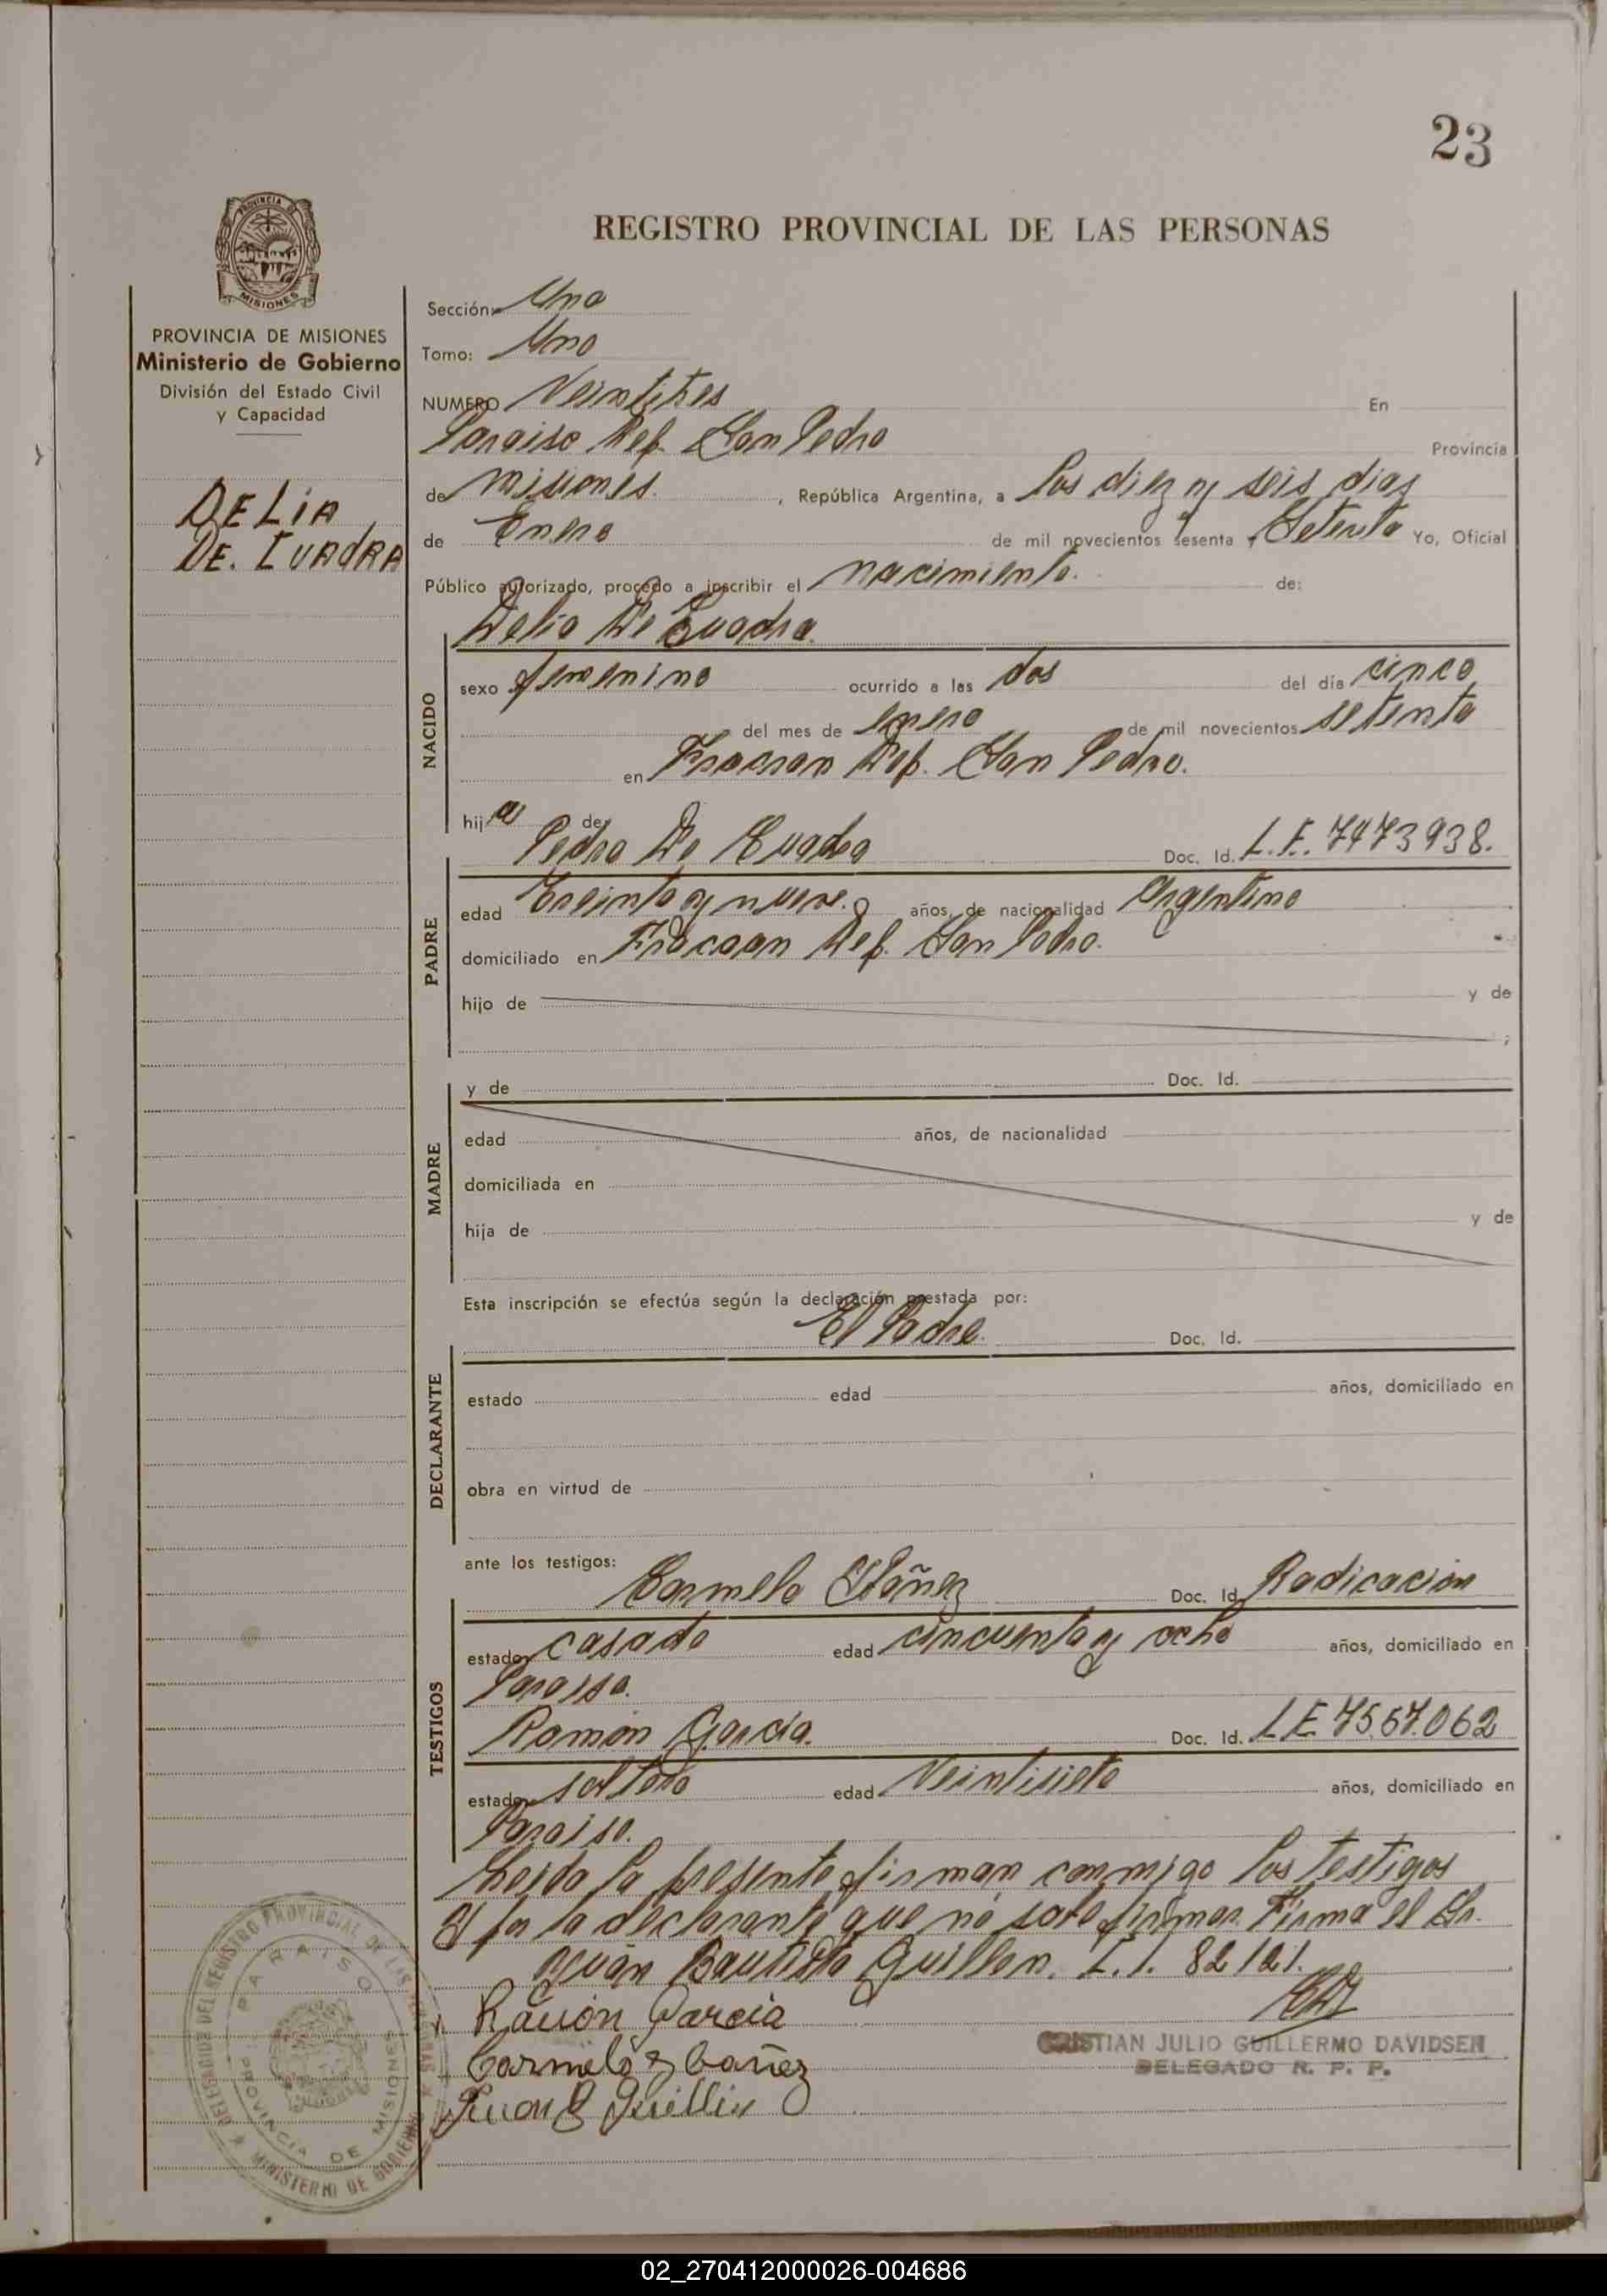 23
REGISTRO PROVINCIAL DE LAS PERSONAS
PROVINCIA DE
MISIONES
PROVINCIA DE MISIONES
Ministerio de Gobierno
División del Estado Civil
y Capacidad
DELIA
DE. CUADRA
Sección: Uno
Tomo: Uno
NUMERO Veintitres En
Paraiso Dep. San Pedro Provincia
de Misiones. , República Argentina, a los diez y seis dias
de Enero de mil novecientos sesenta y Setenta Yo, Oficial
Público autorizado, procedo a inscribir el nacimiento. de:
Delia De Cuadra.
NACIDO
sexo femenino ocurrido a las dos del día cinco
del mes de enero de mil novecientos setenta
en Fracran Dep. San Pedro.
hija de
Pedro De Cuadra Doc. Id. L.E. 7473938.
PADRE
edad Treinta y nueve. años, de nacionalidad Argentino
domiciliado en Fracran Dep. San Pedro.
hijo de y de
;
MADRE
y de Doc. Id.
edad años, de nacionalidad
domiciliada en
hija de y de
Esta inscripción se efectúa según la declaración prestada por:
El Padre. Doc. Id.
DECLARANTE
estado edad años, domiciliado en
obra en virtud de
ante los testigos:
Carmelo Ibáñez Doc. Id. Radicación
TESTIGOS
estado casado edad cincuenta y ocho años, domiciliado en
Paraiso.
Ramón García. Doc. Id. L.E 7557.062
estado soltero edad Veintisiete años, domiciliado en
Paraiso.
Leida la presente firman conmigo los testigos
por la declarante que no sabe firmar. Firma el Sr.
Juan Bautista Guillen. C.I. 82121.
Ramón García
Carmelo Ibañez
Juan B Guillen
CRISTIAN JULIO GUILLERMO DAVIDSEN
DELEGADO R. P. P.
DELEGACION DEL REGISTRO PROVINCIAL DE LAS PERSONAS
MINISTERIO DE GOBIERNO
PARAISO
PROVINCIA DE MISIONES
02_270412000026-004686